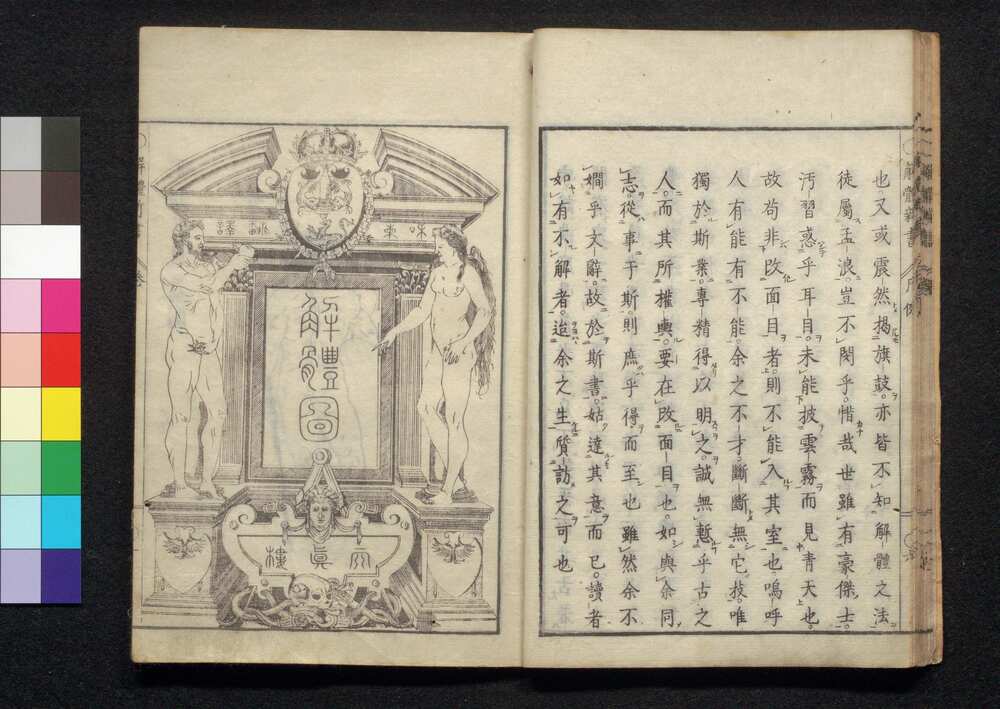 也又或震然揭旗鼓亦皆不知解體之法
徒屬孟浪豈不閔乎惜哉世雖有豪傑士
汚習惑乎耳目未能披雲霧而見青天也
故苟非改面目者則不能入其室也嗚呼
人有能有不能余之不才斷斷無它技唯
獨於斯業專精得以明之誠無慙乎古之
人而其所權輿要在改面目也如與余同
志從事于斯則庶乎得而至也雖然余不
嫺乎文辭故於斯書姑達其意而已讀者
如有不解者迨余之生質訪之可也
解體圖